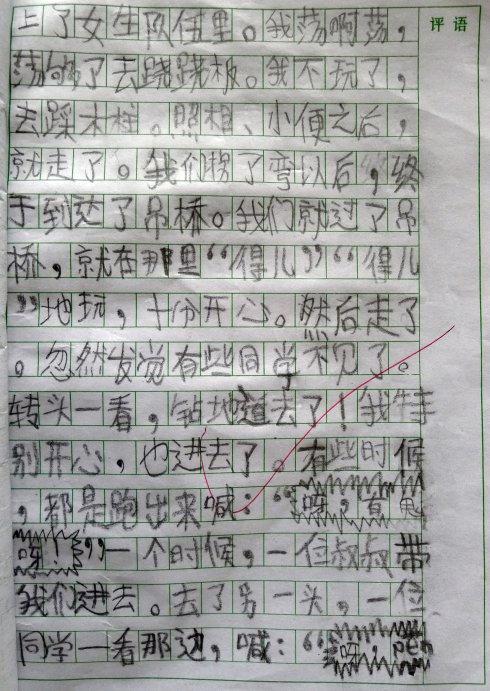 评语
上了女生队伍里。我荡啊荡，
荡够了去跷跷板。我不玩了，
去踩木桩。照相、小便之后，
就走了。我们拐了弯以后，终
于到达了吊桥。我们就过了吊
桥，就在那里“得儿”“得儿
”地玩，十分开心。然后走了
。忽然发觉有些同学不见了。
转头一看，钻地道去了！我特
别开心，也进去了。有些时候
，都是跑出来喊：“呀，有鬼
呀！”一个时候，一位叔叔带
我们进去。去了另一头，一位
同学一看那边，喊：“呀，